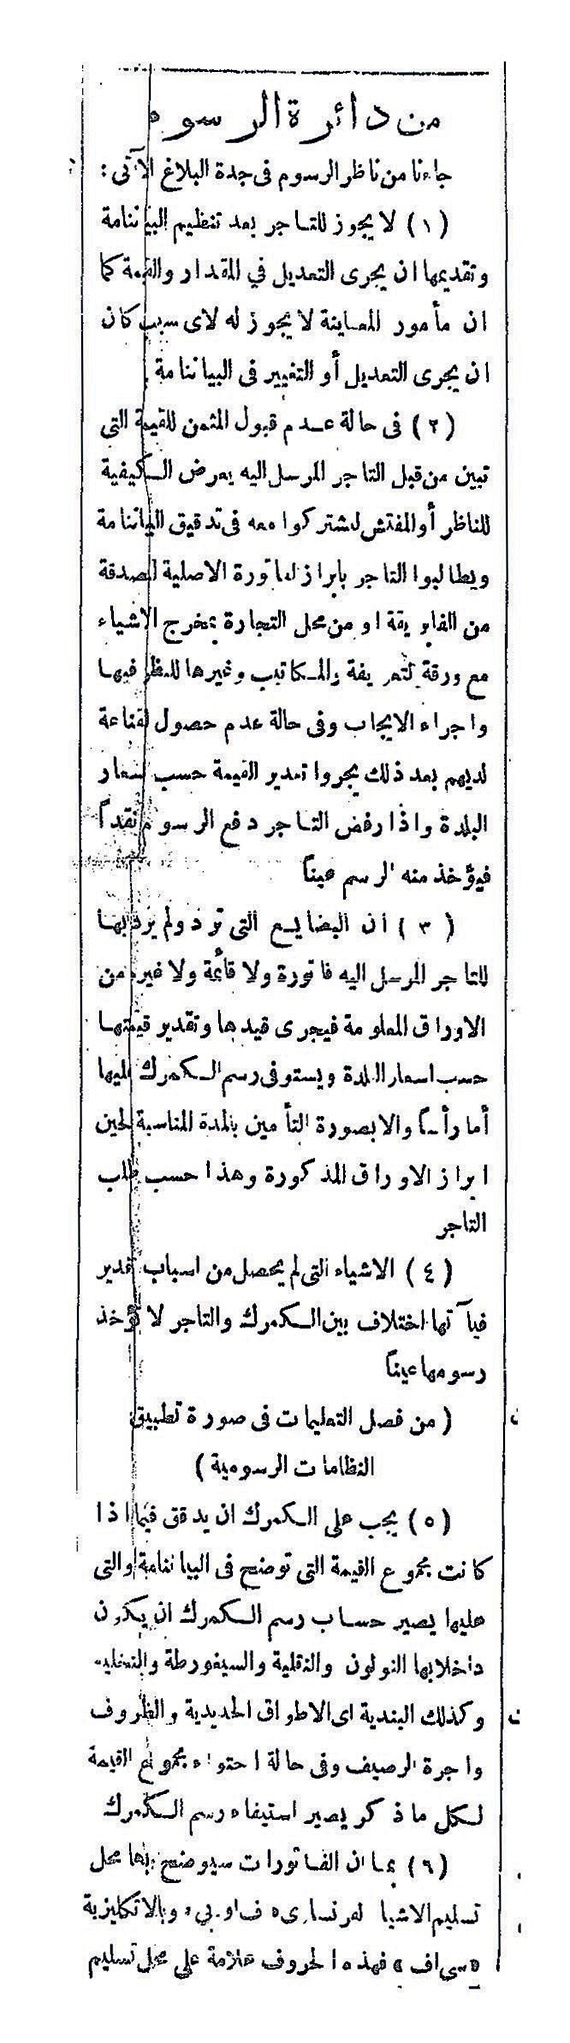 من دائرة الرسوم
جاءنا من ناظر الرسوم فى جدة البلاغ الآتى :
( ١ ) لا يجوز للتاجر بعد تنظيم البياننامة
وتقديمها ان يجرى التعديل في المقدار والقيمة كما
ان مأمور المعاينة لا يجوز له لاى سبب كان
ان يجرى التعديل أو التغيير فى البياننامة .
( ٢ ) فى حالة عدم قبول المثمن للقيمة التى
تبين من قبل التاجر المرسل اليه يعرض الكيفية
للناظر أو المفتش ليشتركوا معه فى تدقيق البياننامة
ويطالبوا التاجر بابراز الفاتورة الاصلية المصدقة
من الفابريقة او من محل التجارة بمخرج الاشياء
مع ورقة التعريفة والمكاتيب وغيرها للنظر فيها
واجراء الايجاب وفى حالة عدم حصول القناعة
لديهم بعد ذلك يجروا تقدير القيمة حسب اسعار
البلدة واذا رفض التاجر دفع الرسوم نقداً
فيؤخذ منه الرسم عيناً
( ٣ ) ان البضايع التى ترد ولم يرد بها
للتاجر المرسل اليه فاتورة ولا قائمة ولا غيره من
الاوراق المعلومة فيجرى قيدها وتقدير قيمتها
حسب اسعار البلدة ويستوفى رسم الكمرك عليها
أما رأساً والا بصورة التأمين بالمدة المناسبة لحين
ابراز الاوراق المذكورة وهذا حسب طلب
التاجر
( ٤ ) الاشياء التى لم يحصل من اسباب تقدير
فيآتها اختلاف بين الكمرك والتاجر لا تؤخذ
رسومها عيناً
( من فصل التعليمات فى صورة تطبيق
النظامات الرسومية )
( ٥ ) يجب على الكمرك ان يدقق فيما اذا
كانت مجموع القيمة التى توضح فى البياننامة والتى
عليها يصير حساب رسم الكمرك ان يكون
داخلا بها النولون والنقلية والسيغورطة والتخليه
وكذلك البندية اى الاطواق الحديدية والظروف
واجرة الرصيف وفى حالة احتواء مجموع القيمة
لكل ما ذكر يصير استيفاء رسم الكمرك
( ٦ ) بما ان الفاتورات سيوضح بها محل
تسليم الاشيا وبالانكليزية
« سى اف » فهذه الحروف علامة على محل تسليم